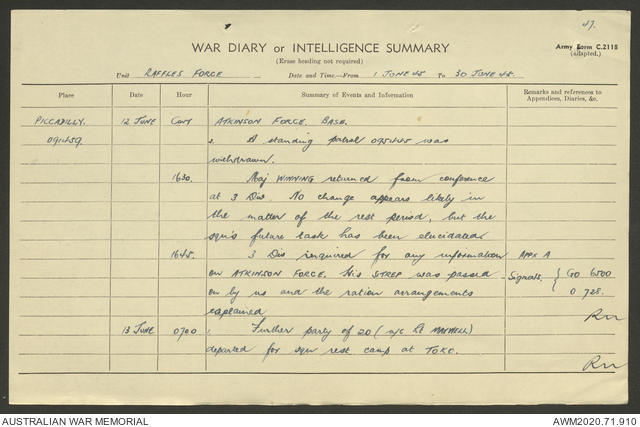 47.
WAR DIARY or INTELLIGENCE SUMMARY
Army Form C.2118
(adapted.)
(Erase heading not required)
Unit RAFFLES FORCE Date and Time.—From 1 JUNE 45 To 30 JUNE 45.
Place Date Hour Summary of Events and Information Remarks and references to
Appendices, Diaries, &c.
PICCADILLY. 12 JUNE Cont ATKINSON FORCE. BASE.
091459. A standing patrol 095445 was
withdrawn.
1630. Maj WINNING returned from conference
at 3 Div. No change appears likely in
the matter of the rest period, but the
sqn's future task has been elucidated.
1645. 3 Div inquired for any information APPX A
on ATKINSON FORCE. His SITREP was passed Signals. { GO 6500
on by us and the ration arrangements O 728.
explained
13 JUNE 0700 Further party of 20 (o/c Lt MAXWELL)
departed for sqn rest camp at TOKO.
AUSTRALIAN WAR MEMORIAL AWM2020.71.910